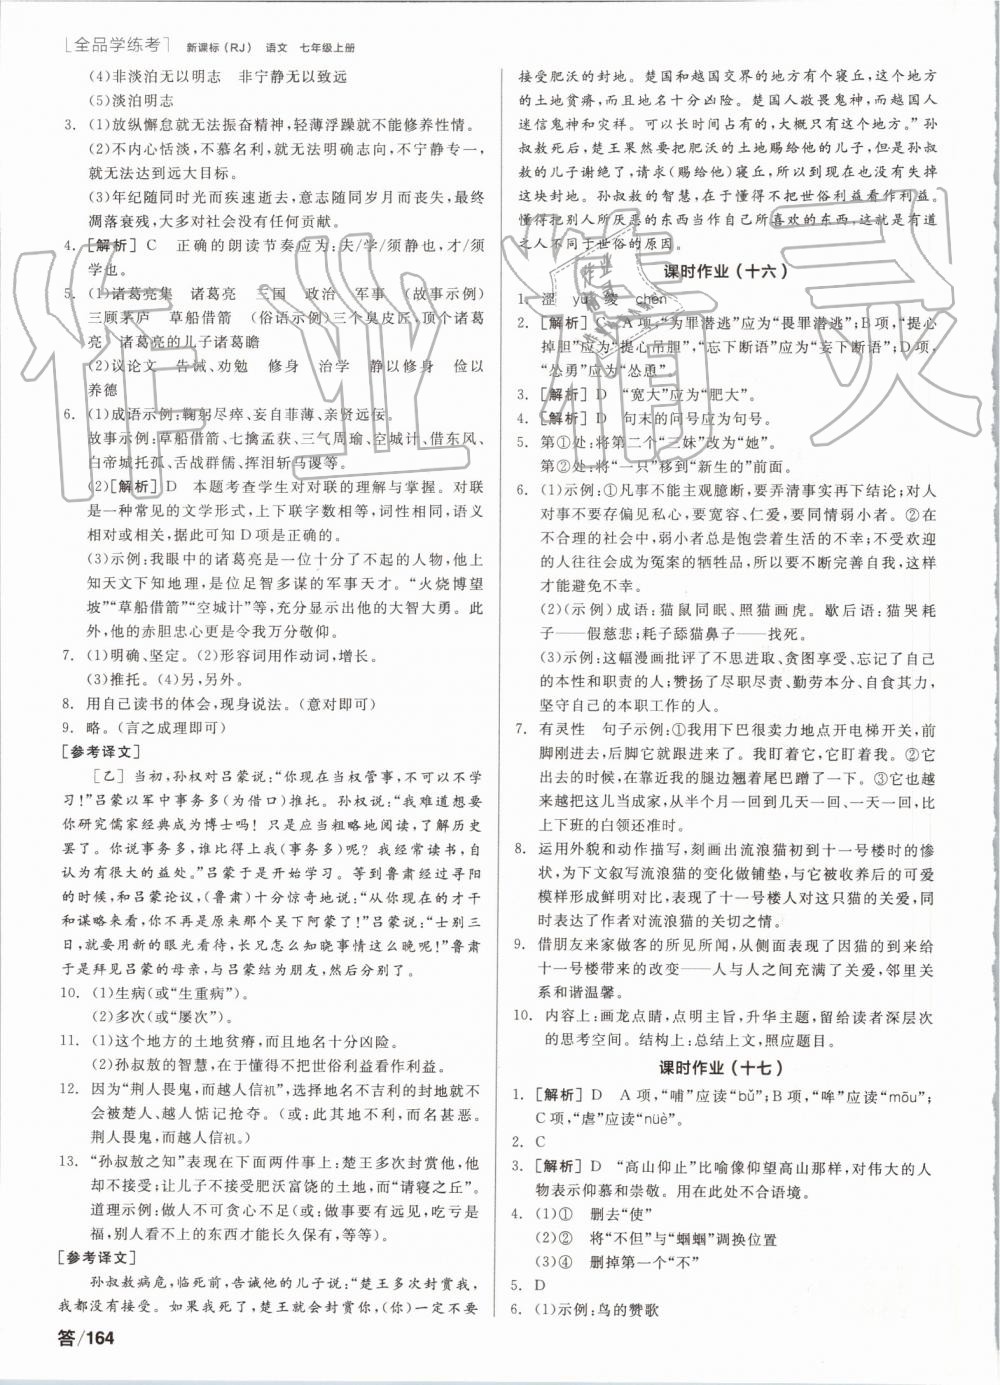 全品学练考 新课标(RJ) 语文 七年级上册
(4)非淡泊无以明志 非宁静无以致远
(5)淡泊明志
3. (1)放纵懈怠就无法振奋精神,轻薄浮躁就不能修养性情。
(2)不内心恬淡,不慕名利,就无法明确志向,不宁静专一,
就无法达到远大目标。
(3)年纪随同时光而疾速逝去,意志随同岁月而丧失,最终
凋落衰残,大多对社会没有任何贡献。
4. [解析] C 正确的朗读节奏应为:夫/学/须静也,才/须
学也。
5. (1)诸葛亮集 诸葛亮 三国 政治 军事 (故事示例)
三顾茅庐 草船借箭 (俗语示例)三个臭皮匠,顶个诸葛
亮 诸葛亮的儿子诸葛瞻
(2)议论文 告诫、劝勉 修身 治学 静以修身 俭以
养德
6. (1)成语示例:鞠躬尽瘁、妄自菲薄、亲贤远佞。
故事示例:草船借箭、七擒孟获、三气周瑜、空城计、借东风、
白帝城托孤、舌战群儒、挥泪斩马谡等。
(2)[解析] D 本题考查学生对对联的理解与掌握。对联
是一种常见的文学形式,上下联字数相等,词性相同,语义
相对或相关,据此可知D项是正确的。
(3)示例:我眼中的诸葛亮是一位十分了不起的人物,他上
知天文下知地理,是位足智多谋的军事天才。“火烧博望
坡”“草船借箭”“空城计”等,充分显示出他的大智大勇。此
外,他的赤胆忠心更是令我万分敬仰。
7. (1)明确、坚定。(2)形容词用作动词,增长。
(3)推托。(4)另,另外。
8. 用自己读书的体会,现身说法。(意对即可)
9. 略。(言之成理即可)
[参考译文]
[乙] 当初,孙权对吕蒙说:“你现在当权管事,不可以不学
习!”吕蒙以军中事务多(为借口)推托。孙权说:“我难道想要
你研究儒家经典成为博士吗! 只是应当粗略地阅读,了解历史
罢了。你说事务多,谁比得上我(事务多)呢? 我经常读书,自
认为有很大的益处。”吕蒙于是开始学习。等到鲁肃经过寻阳
的时候,和吕蒙论议,(鲁肃)十分惊奇地说:“从你现在的才干
和谋略来看,你不再是原来的那个吴下阿蒙了!”吕蒙说:“士别三
日,就要用新的眼光看待,长兄怎么知晓事情这么晚呢!”鲁肃
于是拜见吕蒙的母亲,与吕蒙结为朋友,然后告别。
10. (1)生病(或“生重病”)。
(2)多次(或“屡次”)。
11. (1)这个地方的土地贫瘠,而且名字十分凶险。
(2)孙叔敖的智慧,在于懂得不把世俗利益看作利益。
12. 因为“荆人畏鬼,而越人信机”,选择地名不吉利的封地就不会
被楚人、越人惦记抢夺。(或:此其地不利,而名甚恶。
荆人畏鬼,而越人信机。)
13. “孙叔敖之知”表现在下面两件事上:楚王多次封赏他,他
都没有接受;让儿子不接受肥沃富饶的土地,而“请寝之丘”。
道理示例:做人不可贪心不足(或:做事要有远见,吃亏是
福,别人看不上的东西才能长久保有,等等)。
[参考译文]
孙叔敖病危,临死前,告诫他的儿子说:“楚王多次封赏我,
我都没有接受。如果我死了,楚王就会封赏你,(你)一定不要
答/164
接受肥沃的封地。楚国和越国交界的地方有个寝丘,这个地方
的土地贫瘠,而且地名十分凶险。楚国人敬畏鬼神,而越国人
迷信鬼神和灾祥。可以长时间占有的,大概只有这个地方。”孙
叔敖死后,楚王果然要把肥沃的土地赐给他的儿子,但是孙叔
敖的儿子谢绝了,请求(赐给)他寝丘,所以到现在也没有失掉
这块封地。孙叔敖的智慧,在于懂得不把世俗利益看作利益。
懂得把别人所厌恶的东西当作自己所喜欢的东西,这就是有道
之人不同于世俗的原因。
课时作业(十六)
1. 涩 yù 绫 chēn
2. [解析] C A项,“为罪潜逃”应为“畏罪潜逃”;B项,“提心
掉胆”应为“提心吊胆”,“忘下断语”应为“妄下断语”;D项,
“怂勇”应为“怂恿”。
3. [解析] D “宽大”应为“肥大”。
4. [解析] D 句末的问号应为句号。
5. 第①处:将第二个“三妹”改为“她”。
第②处:将“一只”移到“新生的”前面。
6. (1)示例:①凡事不能主观臆断,要弄清事实再下结论;对人
对事不要存有偏见私心,要宽容、仁爱,要同情弱小者。②在
不合理的社会中,弱小者总是饱尝着生活的不幸;不受欢迎
的人往往会成为冤案的牺牲品,所以要不断完善自我,这样
才能避免不幸。
(2)(示例)成语:猫鼠同眠、照猫画虎。歇后语:猫哭耗
子——假慈悲;耗子舔猫鼻子——找死。
(3)示例:这幅漫画批评了不思进取、贪图享受、忘记了自己
的本分和职责的人;赞扬了尽职尽责、勤劳本分、自食其力,
坚守自己的本职工作的人。
7. 有灵性 句子示例:①我用下巴很卖力地点开电梯开关,前
脚刚进去,后脚它就跟进来了。我盯着它,它盯着我。②它
出去的时候,在靠近我的腿边翘着尾巴蹭了一下。③它也越
来越把这儿当成家,从半个月一回、一天一回、一天一回,比
上下班的白领还准时。
8. 运用外貌和动作描写,刻画出流浪猫初到十一号楼时的惨
状,为下文叙述流浪猫的变化做铺垫,与它被收养后的可爱
模样形成鲜明对比,表现了十一号楼人对这只猫的关爱,同
时表达了作者对流浪猫的关切之情。
9. 借朋友来家做客的所见所闻,从侧面表现了因猫的到来给
十一号楼带来的改变——人与人之间充满了关爱,邻里关
系和谐温馨。
10. 内容上:画龙点睛,点明主旨,升华主题,留给读者深层次
的思考空间。结构上:总结上文,照应题目。
课时作业(十七)
1. [解析] D A项,“哺”应读“bǔ”;B项,“哞”应读“mōu”;
C项,“虐”应读“nüè”。
2. C
3. [解析] D “高山仰止”比喻像仰望高山那样,对伟大的人
物表示仰慕和崇敬。用在此处不合语境。
4. (1)① 删去“使”
(2)② 将“不但”与“蝈蝈”调换位置
(3)④ 删掉第一个“不”
5. D
6. (1)示例:鸟的赞歌